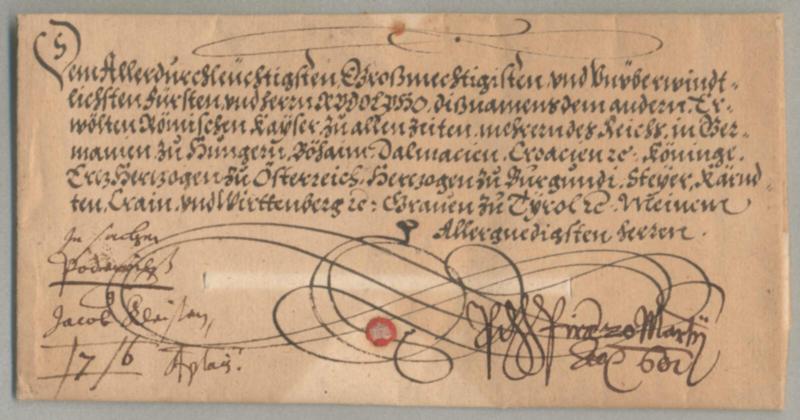 Dem Allerdurchleuchtigsten, Großmechtigisten, vnd Vnüberwindt-
lichsten Fürsten, vnd Herrn RVDOLPHO, diß namens dem andern, Er-
wölten Römischen Kayser, zu allen zeiten, mehrern des Reichs, in Ger-
manien, zu Hungern, Böhaim, Dalmacien, Croacien rc. Köninge,
Ertz Hertzogen zu Österreich, Hertzogen zu Burgundi, Steyer, Kärnd-
ten, Crain, vnd Wirttenberg rc: Grauen zu Tÿrol rc. Meinem
Allergnedigsten Herren.
In sachen
Podewilß
Jacob Kleisten,
20 Martij